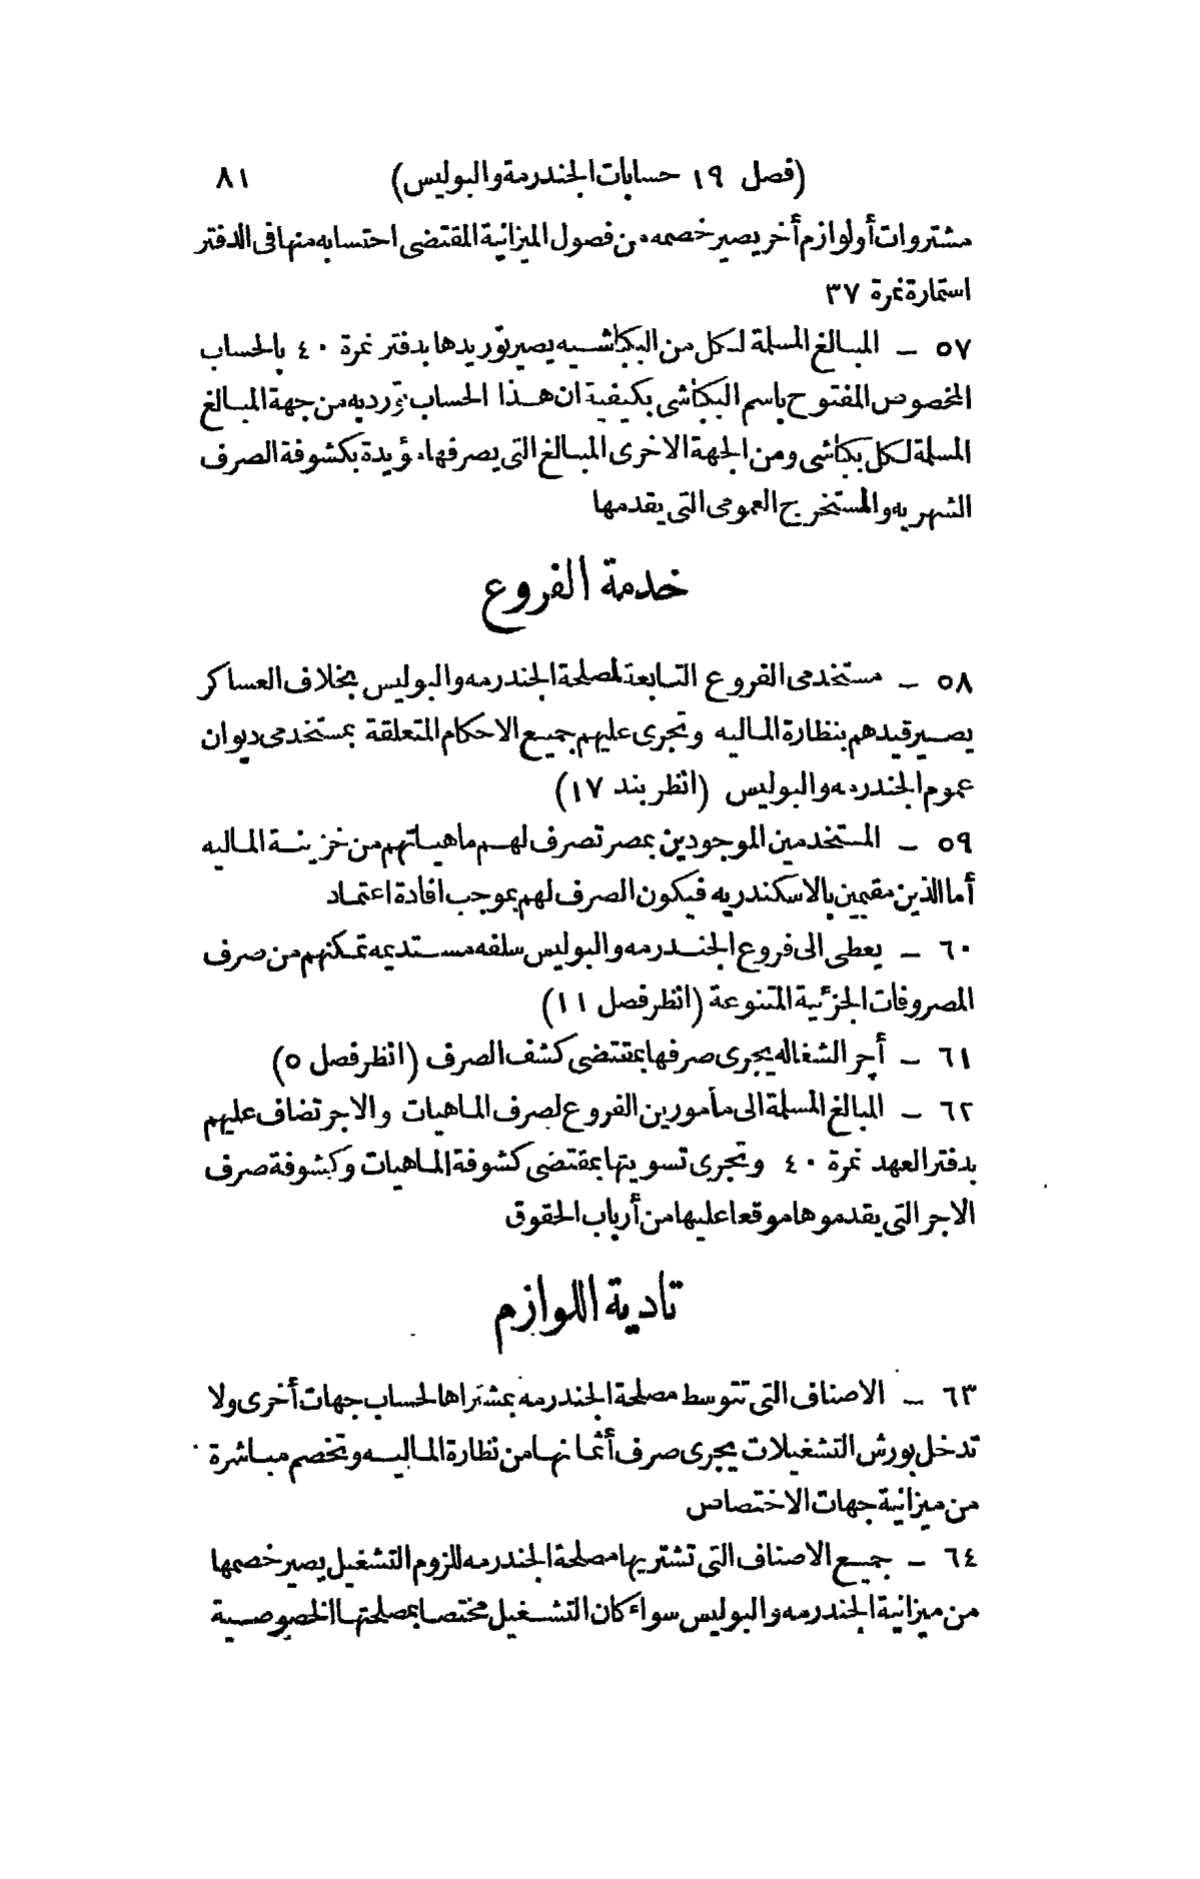 (فصل ١٩ حسابات الجندرمة والبوليس) ٨١
مشتروات أو لوازم أخر يصير خصمه من فصول الميزانية المقتضى احتسابه منها فى الدفتر
استمارة نمرة ٣٧
٥٧ – المبالغ المسلمة لكل من البكباشيه يصير توريدها بدفتر نمرة ٤٠ بالحساب
المخصوص المفتوح باسم البكباشى بكيفية ان هذا الحساب تورد به من جهة المبالغ
المسلمة لكل بكباشى ومن الجهة الاخرى المبالغ التى يصرفها مؤيدة بكشوفة الصرف
الشهريه والمستخرج العمومى التى يقدمها
خدمة الفروع
٥٨ – مستخدمى الفروع التابعة لمصلحة الجندرمه والبوليس بخلاف العساكر
يصير قيدهم بنظارة الماليه وتجرى عليهم جميع الاحكام المتعلقة بمستخدمى ديوان
عموم الجندرمه والبوليس (انظر بند ١٧)
٥٩ – المستخدمين الموجودين بمصر تصرف لهم ماهياتهم من خزينة الماليه
أما الذين مقيمين بالاسكندريه فيكون الصرف لهم بموجب افادة اعتماد
٦٠ – يعطى الى فروع الجندرمه والبوليس سلفه مستديمه تمكنهم من صرف
المصروفات الجزئية المتنوعة (انظر فصل ١١)
٦١ – أجر الشغاله يجرى صرفها بمقتضى كشف الصرف (انظر فصل ٥)
٦٢ – المبالغ المسلمة الى مأمورين الفروع لصرف الماهيات والاجر تضاف عليهم
بدفتر العهد نمرة ٤٠ وتجرى تسويتها بمقتضى كشوفة الماهيات وكشوفة صرف
الاجر التى يقدموها موقعا عليها من أرباب الحقوق
تادية اللوازم
٦٣ – الاصناف التى تتوسط مصلحة الجندرمه بمشتراها لحساب جهات أخرى ولا
تدخل بورش التشغيلات يجرى صرف أثمانها من نظارة الماليه وتخصم مباشرة
من ميزانية جهات الاختصاص
٦٤ – جميع الاصناف التى تشتريها مصلحة الجندرمه للزوم التشغيل يصير خصمها
من ميزانية الجندرمه والبوليس سواء كان التشغيل مختصا بمصلحتها الخصوصية